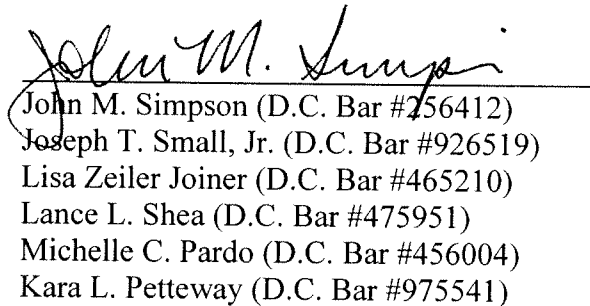 John M. Simpson
John M. Simpson (D.C. Bar #256412)
Joseph T. Small, Jr. (D.C. Bar #926519)
Lisa Zeiler Joiner (D.C. Bar #465210)
Lance L. Shea (D.C. Bar #475951)
Michelle C. Pardo (D.C. Bar #456004)
Kara L. Petteway (D.C. Bar #975541)